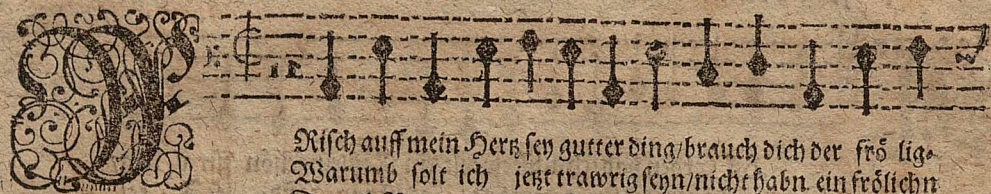 FRisch auff mein Hertz sey gutter ding/brauch dich der frö lig=
Warumb solt ich jetzt trawrig seyn/nicht habn ein frölichn